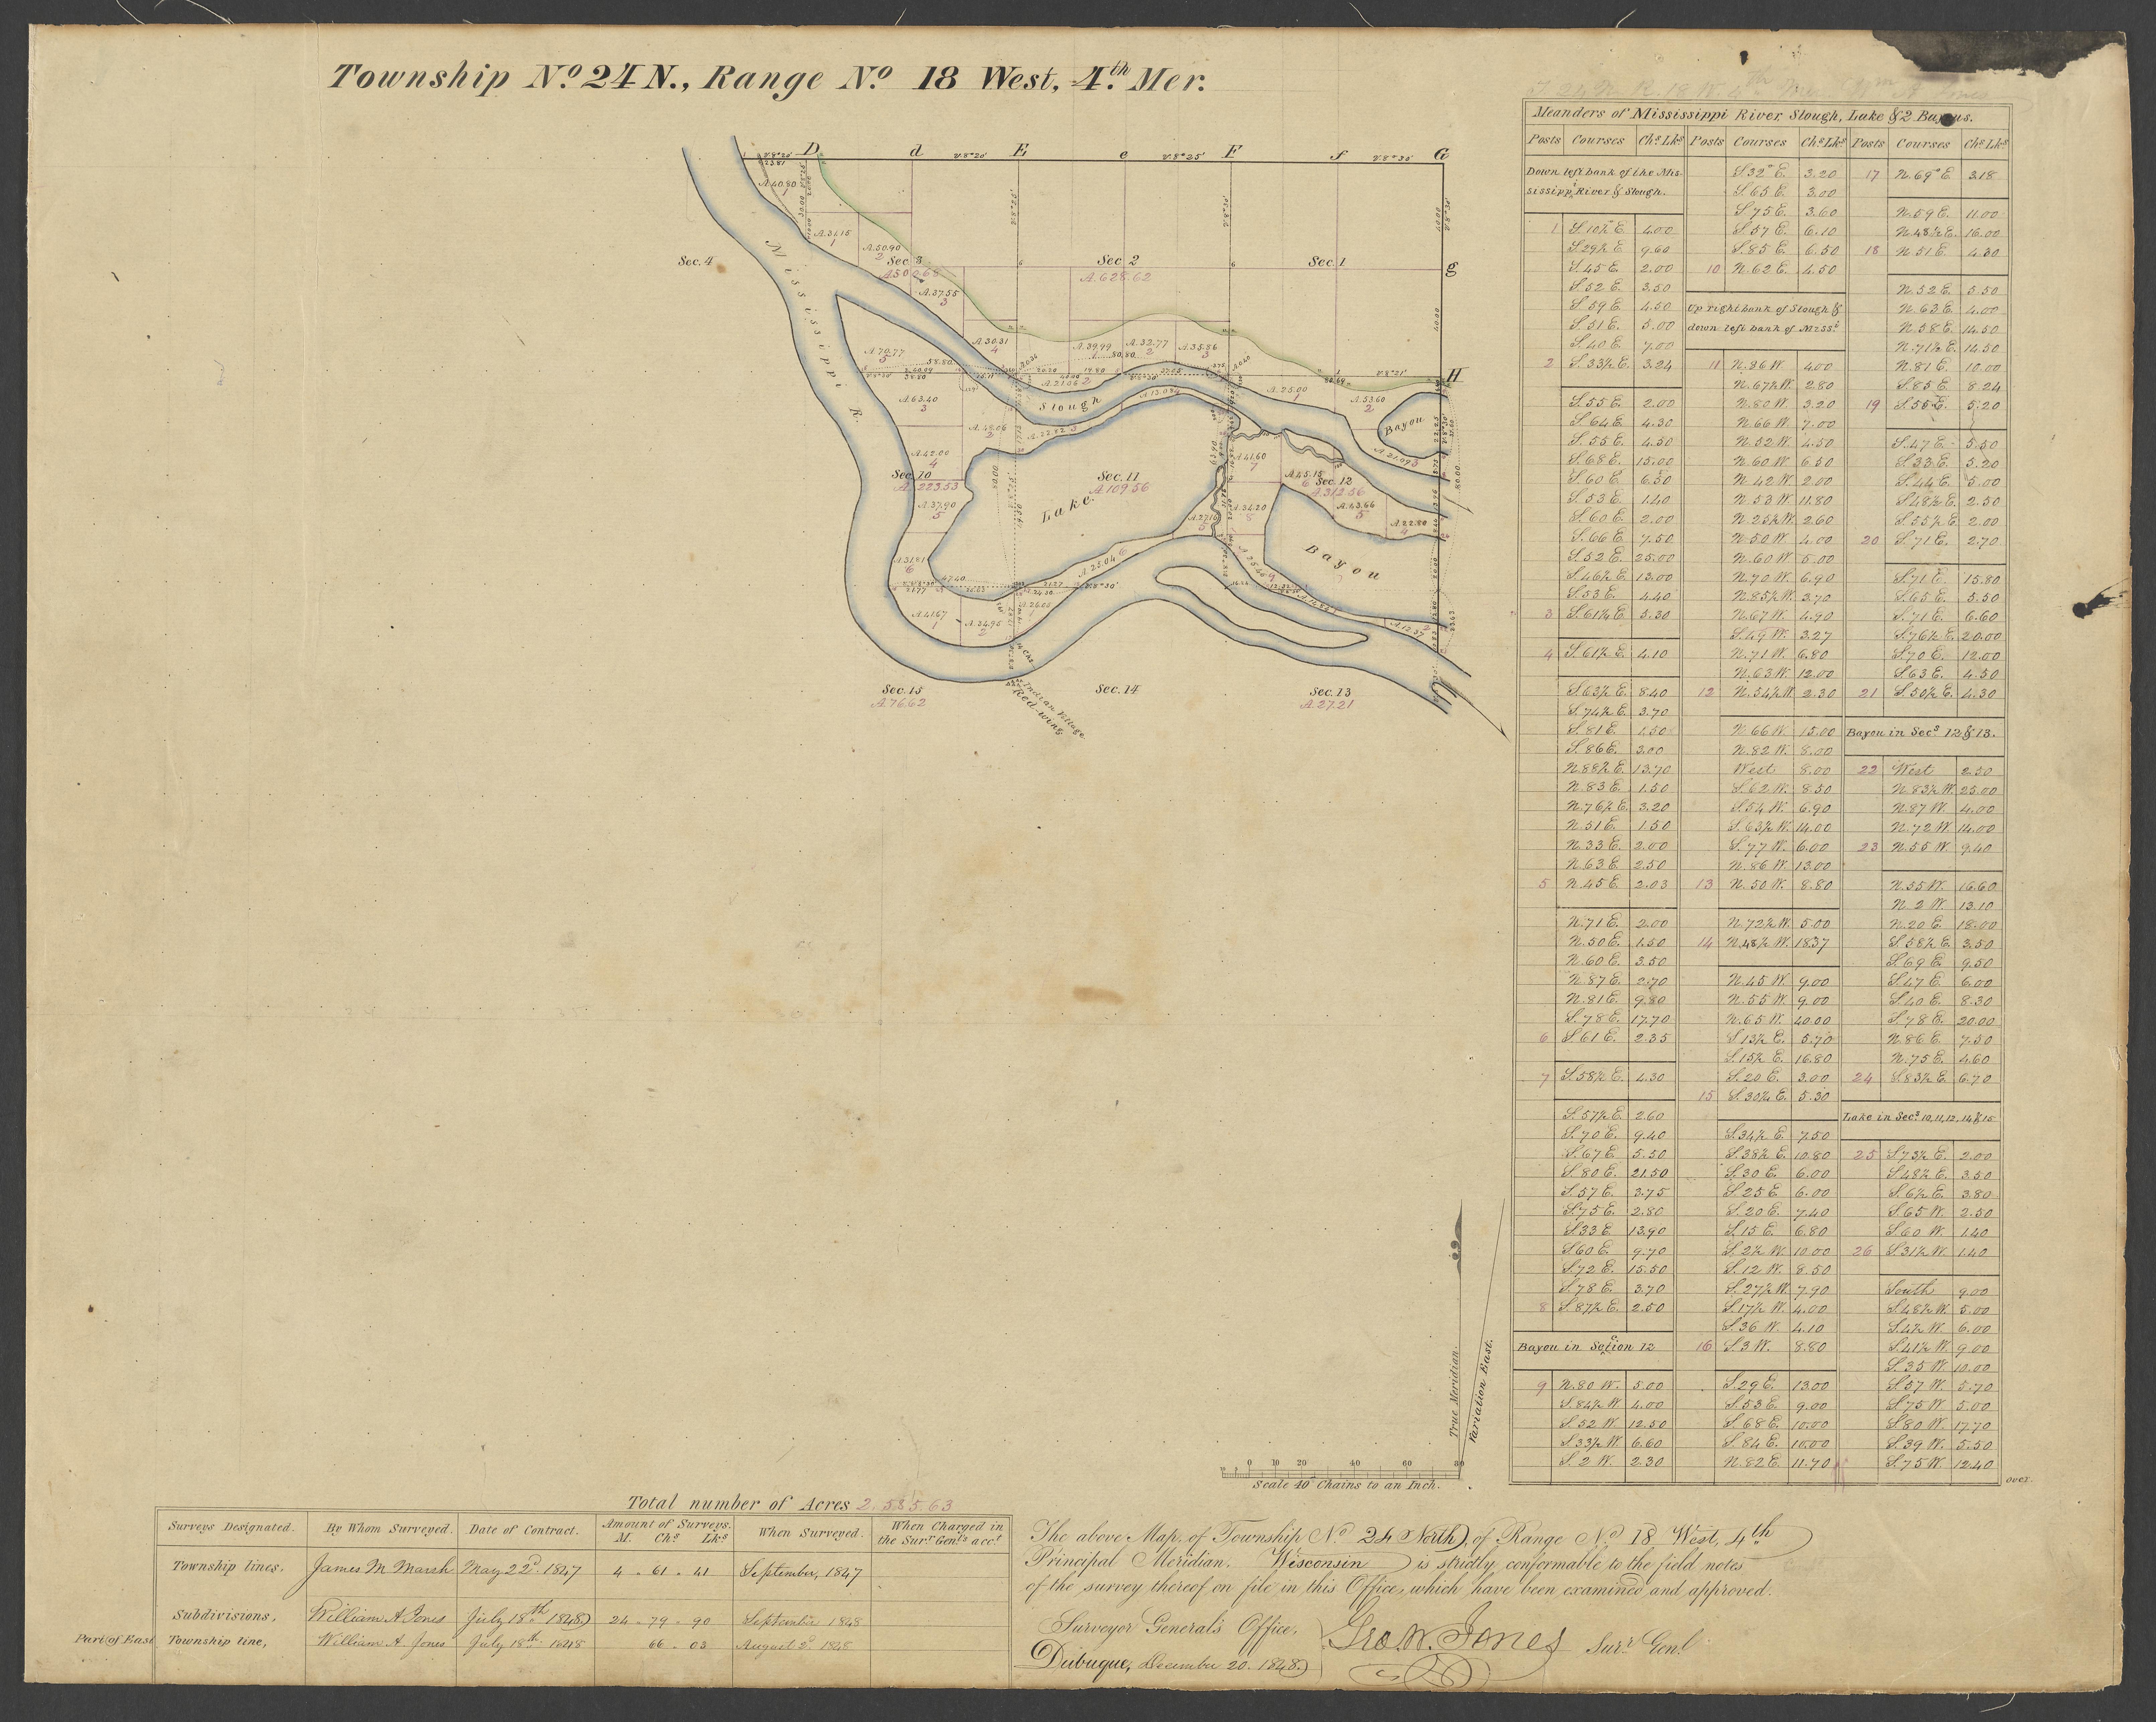 Township Nº 24 N., Range Nº 18 West, 4th Mer.
D d E e F f G
V.8°20' V.8°20' V.8°25' V.8°30'
23.81
A.40.80
1
A.31.15
1
A.50.90
2
Sec. 4
Sec. 3
A.500.68
Sec. 2
A.628.62
Sec. 1
g
A.37.55
3
Mississippi R.
A.30.31
4
A.39.99
1
A.32.77
2
A.35.86
3
A.70.77
5
58.80
80.80
H
V.8°21'
A.21.06 2
A.25.00
1
A.53.60
2
A.63.40
3
Slough
Bayou
A.48.06
2
A.22.82 3
A.42.00
4
Sec. 10
A.223.53
Sec. 11
A.109.56
A.41.60
7
A.45.15
6
Sec. 12
A.312.56
A.21.09 3
Lake
A.37.90
5
A.27.10
5
A.34.20
8
A.43.66
5
A.22.80
4
Bayou
A.31.81
6
A.25.04 6
47.40
A.41.67
1
A.34.95
2
A.26.05
1
A.12.37 2
Sec. 15
A.76.62
Sec. 14
Sec. 13
A.27.21
Indian Village
Red-wing
True Meridian.
Variation East.
10 5 0 10 20 40 60 80
Scale 40 Chains to an Inch.
Meanders of Mississippi River, Slough, Lake & 2 Bayous.
Posts Courses Chs Lks Posts Courses Chs Lks Posts Courses Chs Lks
Down left bank of the Mis-
sissippi River & Slough.
1 S.10½ E. 4.00
S.29½ E. 9.60
S.45 E. 2.00
S.52 E. 3.50
S.59 E. 4.50
S.51 E. 5.00
S.40 E. 7.00
2 S.33½ E. 3.24
S.55 E. 2.00
S.64 E. 4.30
S.55 E. 4.50
S.68 E. 15.00
S.60 E. 6.50
S.53 E. 1.40
S.60 E. 2.00
S.66 E. 7.50
S.52 E. 25.00
S.46½ E. 13.00
S.53 E. 4.40
3 S.61¼ E. 5.30
4 S.61½ E. 4.10
S.63½ E. 8.40
S.74½ E. 3.70
S.81 E. 1.50
S.86 E. 3.00
N.88½ E. 13.70
N.83 E. 1.50
N.76½ E. 3.20
N.51 E. 1.50
N.33 E. 2.00
N.63 E. 2.50
5 N.45 E. 2.03
N.71 E. 2.00
N.50 E. 1.50
N.60 E. 3.50
N.87 E. 2.70
N.81 E. 9.80
S.78 E. 17.70
6 S.61 E. 2.35
7 S.58½ E. 4.30
S.57½ E. 2.60
S.70 E. 9.40
S.67 E. 5.50
S.80 E. 21.50
S.57 E. 3.75
S.75 E. 2.80
S.33 E. 13.90
S.60 E. 9.70
S.72 E. 15.50
S.78 E. 3.70
8 S.87½ E. 2.50
Bayou in Section 12
9 N.80 W. 5.00
S.84½ W. 4.00
S.52 W. 12.50
S.33½ W. 6.60
S.2 W. 2.30
S.32° E. 3.20
S.65 E. 3.00
S.75 E. 3.60
S.57 E. 6.10
S.85 E. 6.50
10 N.62 E. 4.50
Up right bank of Slough &
down left bank of Missi
11 N.86 W. 4.00
N.67½ W. 2.80
N.80 W. 3.20
N.66 W. 7.00
N.52 W. 4.50
N.60 W. 6.50
N.42 W. 2.00
N.53 W. 11.80
N.25½ W. 2.60
N.50 W. 4.00
N.60 W. 5.00
N.70 W. 6.90
N.85½ W. 3.70
N.67 W. 4.90
S.49 W. 3.27
N.71 W. 6.80
N.63 W. 12.00
12 N.54½ W. 2.30
N.66 W. 15.00
N.82 W. 8.00
West 8.00
S.62 W. 8.50
S.54 W. 6.90
S.63½ W. 14.00
S.77 W. 6.00
N.86 W. 13.00
13 N.50 W. 8.80
N.72½ W. 5.00
14 N.48½ W. 18.37
N.45 W. 9.00
N.55 W. 9.00
N.65 W. 40.00
S.13½ E. 5.70
S.15½ E. 16.80
S.20 E. 3.00
15 S.30¼ E. 5.30
S.34½ E. 7.50
S.38½ E. 10.80
S.30 E. 6.00
S.25 E. 6.00
S.20 E. 7.40
S.15 E. 6.80
S.2½ W. 10.00
S.12 W. 8.50
S.27½ W. 7.90
S.17½ W. 4.00
S.36 W. 4.10
16 S.3 W. 8.80
S.29 E. 13.00
S.53 E. 9.00
S.68 E. 10.00
S.84 E. 10.00
N.82 E. 11.70
17 N.69° E. 3.18
N.59 E. 11.00
N.48½ E. 16.00
18 N.51 E. 4.30
N.52 E. 5.50
N.63 E. 4.00
N.58 E. 14.50
N.71½ E. 14.50
N.81 E. 10.00
S.85 E. 8.24
19 S.55 E. 5.20
S.47 E. 5.50
S.33 E. 5.20
S.44 E. 5.00
S.48½ E. 2.50
S.55½ E. 2.00
20 S.71 E. 2.70
S.71 E. 15.80
S.65 E. 5.50
S.71 E. 6.60
S.76½ E. 20.00
S.70 E. 12.00
S.63 E. 4.50
21 S.50½ E. 4.30
Bayou in Secs 12 & 13.
22 West 2.50
N.83½ W. 25.00
N.87 W. 4.00
N.72 W. 14.00
23 N.55 W. 9.40
N.35 W. 16.60
N.2 W. 13.10
N.20 E. 18.00
S.58½ E. 3.50
S.69 E. 9.50
S.47 E. 6.00
S.40 E. 8.30
S.78 E. 20.00
N.86 E. 7.50
N.75 E. 4.60
24 S.83½ E. 6.70
Lake in Secs 10, 11, 12, 14 & 15
25 S.73½ E. 2.00
S.48½ E. 3.50
S.6½ E. 3.80
S.65 W. 2.50
S.60 W. 1.40
26 S.31½ W. 1.40
South 9.00
S.48½ W. 5.00
S.4½ W. 6.00
S.41½ W. 9.00
S.35 W. 10.00
S.57 W. 5.70
S.75 W. 5.00
S.80 W. 17.70
S.39 W. 5.50
S.75 W. 12.40
over.
Total number of Acres 2.535.63
Surveys Designated. By Whom Surveyed. Date of Contract. Amount of Surveys. M. Chs Lks When Surveyed. When Charged in the Surr Genl's acct
Township lines, James M Marsh May 22d 1847 4 . 61 . 41 September, 1847
Subdivisions, William A Jones July 18th 1848 24 . 79 . 90 September 1848
Part of East Township line, William A Jones July 18th 1848 66 . 03 August 2d 1848
The above Map, of Township Nº 24 North, of Range Nº 18 West, 4th
Principal Meridian, Wisconsin is strictly conformable to the field notes
of the survey thereof on file in this Office, which have been examined and approved.
Surveyor General's Office,
Dubuque, December 20. 1848.
Geo. W. Jones Surr Genl